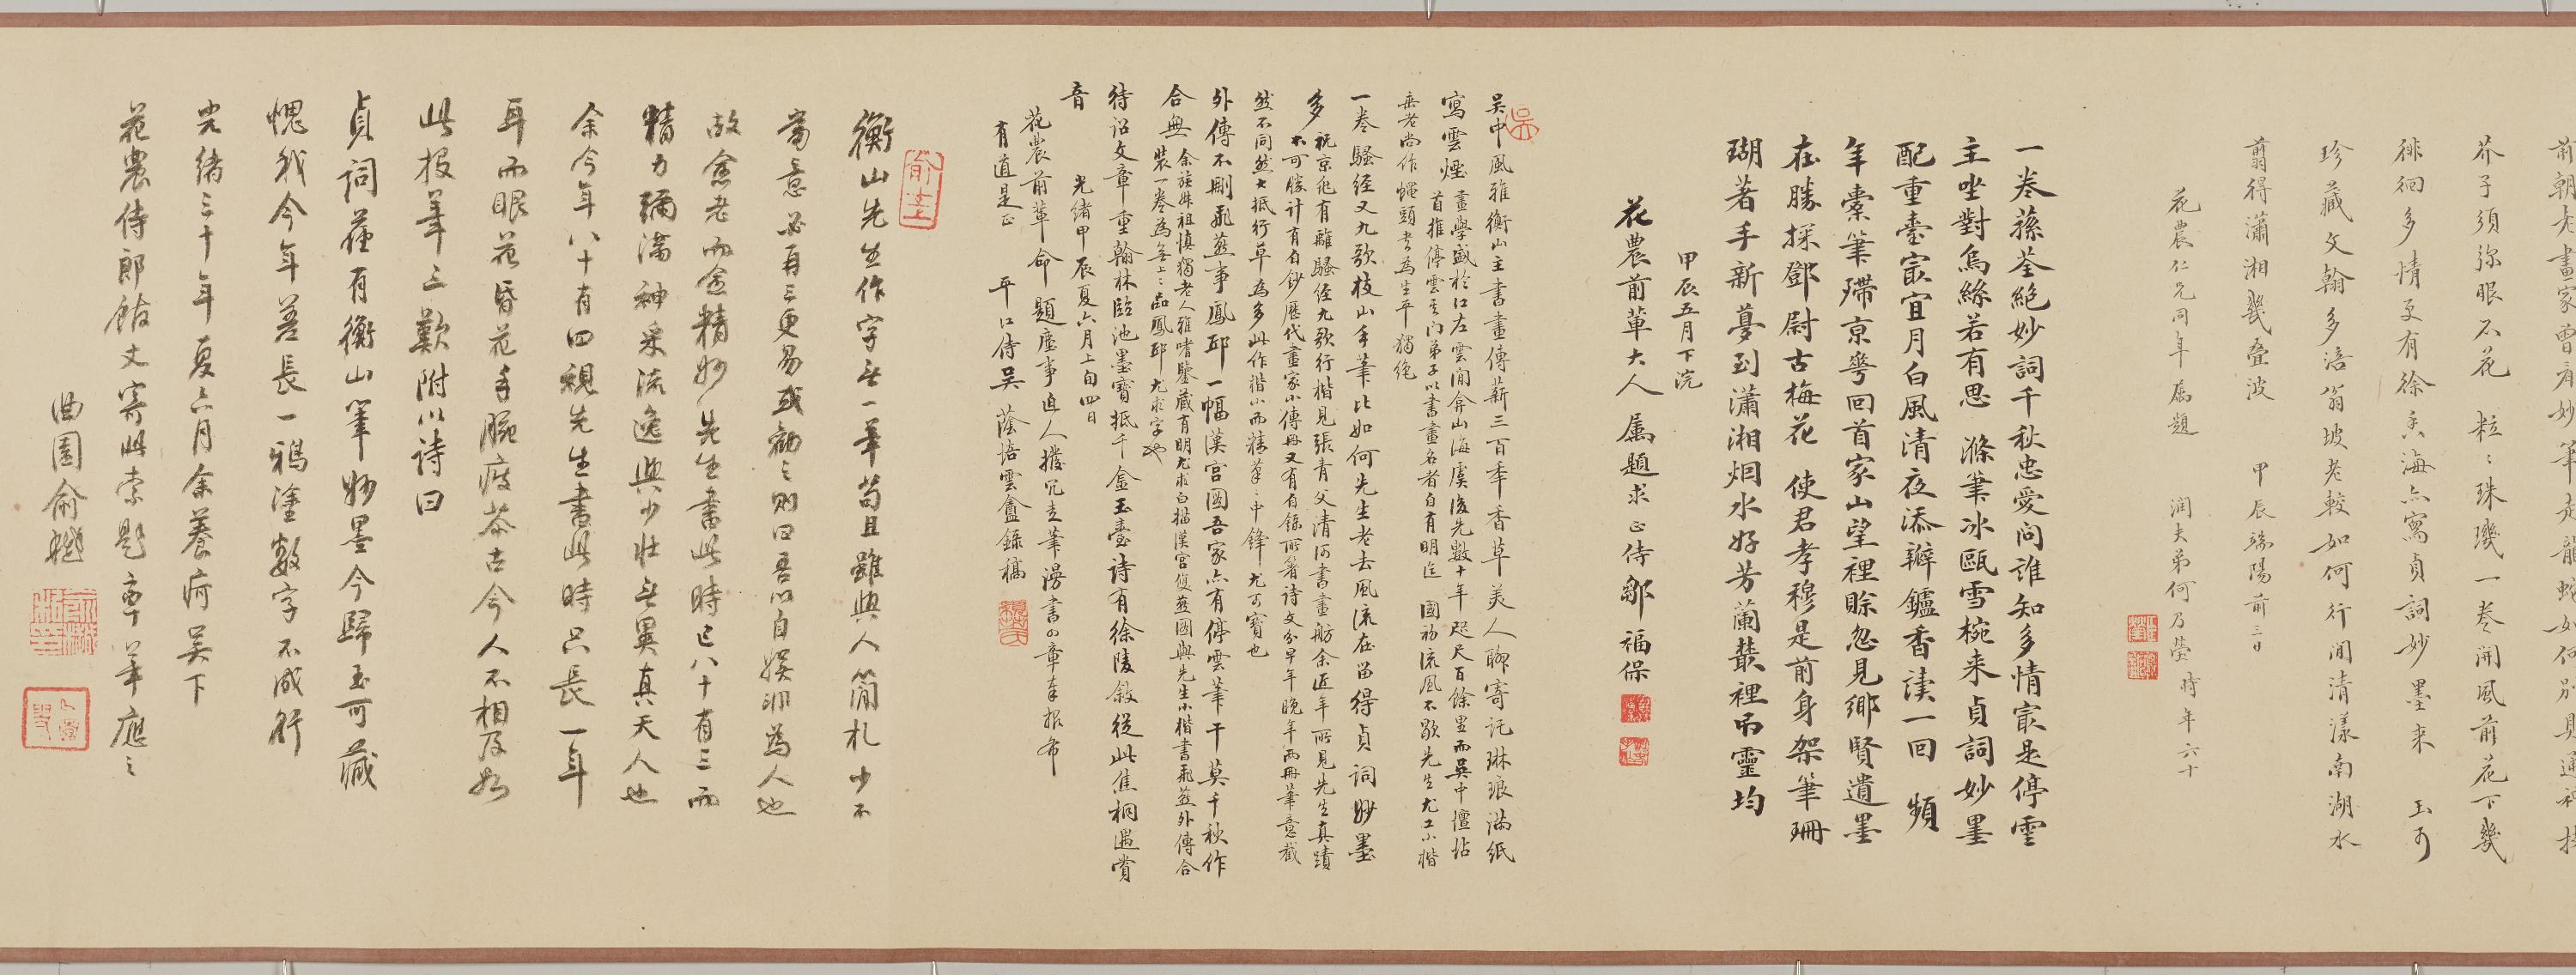 前朝大畫家曾看妙筆走龍蛇如何別具通神技
芥子須弥眼不花 粒〻珠璣一卷開風前花下幾
徘徊多情更有徐青海六寫貞詞妙墨來 玉可
珍藏文翰多涪翁坡老較如何行間清漾南湖水
翦得瀟湘幾叠波
花農仁兄同年屬題 甲辰端陽前三日
潤夫弟何乃瑩時年六十
一卷蓀荃絕妙詞千秋忠愛問誰知多情最是停雲
主坐對烏絲若有思 滌筆冰甌雪椀来貞詞妙墨
配重臺最宜月白風清夜添瓣鑪香讀一回 頻
年橐筆滯京華回首家山望裡賒忽見鄉賢遺墨
在勝探鄧尉古梅花 使君孝穆是前身架筆珊
瑚著手新夢到瀟湘烟水好芳蘭叢裡吊靈均
甲辰五月下浣
花農前輩大人屬題求正侍鄒福保
吳
吳中風雅衡山主書畫傳薪三百年香草美人聊寄託琳琅滿紙
寫雲煙 畫學盛於江左雲間弇山海虞後先數十年咫尺百餘里而吳中壇坫
首推停雲其門弟子以書畫名者自有明迄 國初流風不歇先生尤工小楷
垂老尚作蠅頭書為生平獨絕
一卷騷經又九歌枝山手筆比如何先生老去風流在留得貞詞妙墨
多 祝京兆有離騷經九歌行楷見張青父清河書畫舫余近年所見先生真蹟
不可勝計有自鈔歷代畫家小傳冊又有自錄所箸詩文分早年晚年兩冊筆意截
然不同然大抵行草為多此作楷小而精筆〻中鋒尤可寶也
外傳不刪飛燕事鳳邱一幅漢宮圖吾家亦有停雲筆干莫千秋作
合無 余族姊祖慎獨老人雅嗜鑒藏有明尤求白描漢宮復燕圖與先生小楷書飛燕外傳合
裝一卷為無上〻品鳳邱尤求字也
待詔文章重翰林臨池墨寶抵千金玉臺詩有徐陵敘從此焦桐遇賞
音 光緒甲辰夏六月上旬四日
花農前輩命題塵事迫人撥冗走筆漫書四章奉報希
有道是正 平江侍吳蔭培雲盦錄稿
衡山先生作字無一筆苟且雖與人簡札少不
當意必再三更易或勸之則曰吾以自娱非為人也
故愈老而愈精妙先生書此時已八十有三而
精力彌滿神采流逸與少壯無異真天人也
余今年八十有四視先生書此時只長一年
耳而眼花昏花手腕疲茶古今人不相及如
此投筆三歎附以詩曰
貞詞舊有衡山筆妙墨今歸玉可藏
愧我今年差長一鴉塗數字不成行
光緒三十年夏六月余養疴吳下
花農侍郎館丈寄此索題率筆應之
曲園俞樾